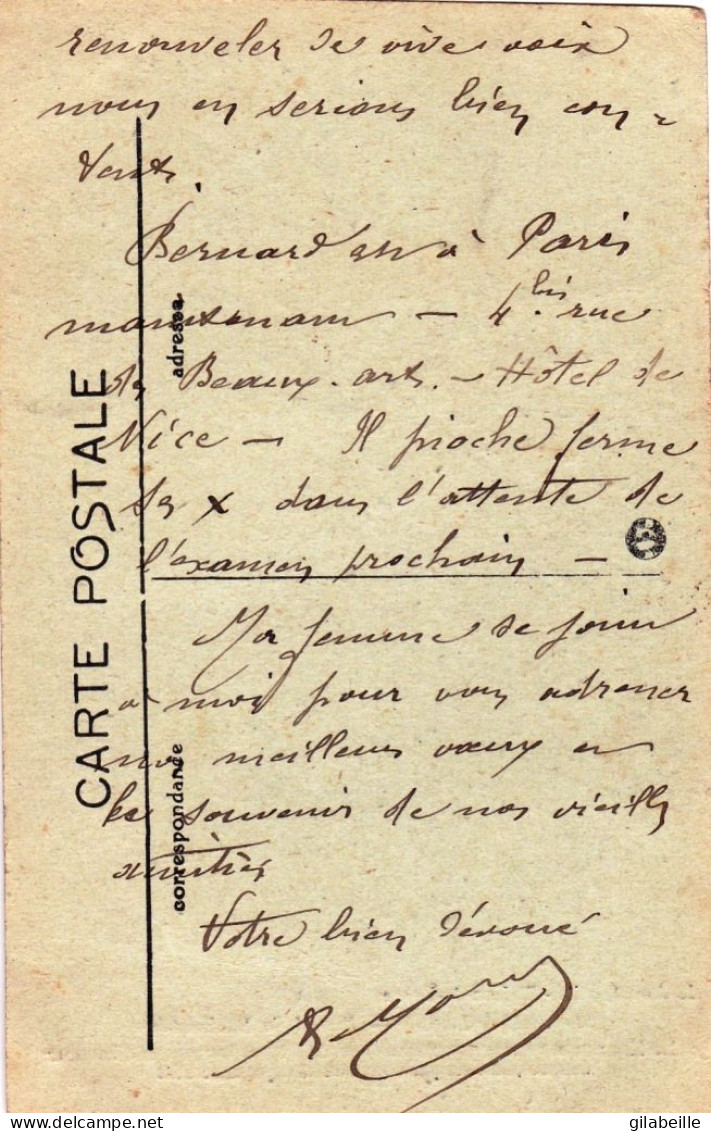 renouveler de vive voix
nous en serions bien con-
tents.
Bernard est à Paris
maintenant — 4 bis rue
des Beaux-arts. — Hôtel de
Nice — Il pioche ferme
ses x dans l'attente de
l'examen prochain —
Ma femme se joint
à moi pour vous adresser
nos meilleurs vœux et
le souvenir de nos vieilles
amitiés
Votre bien dévoué
CARTE POSTALE
adresse
correspondance
© delcampe.net
gilabeille